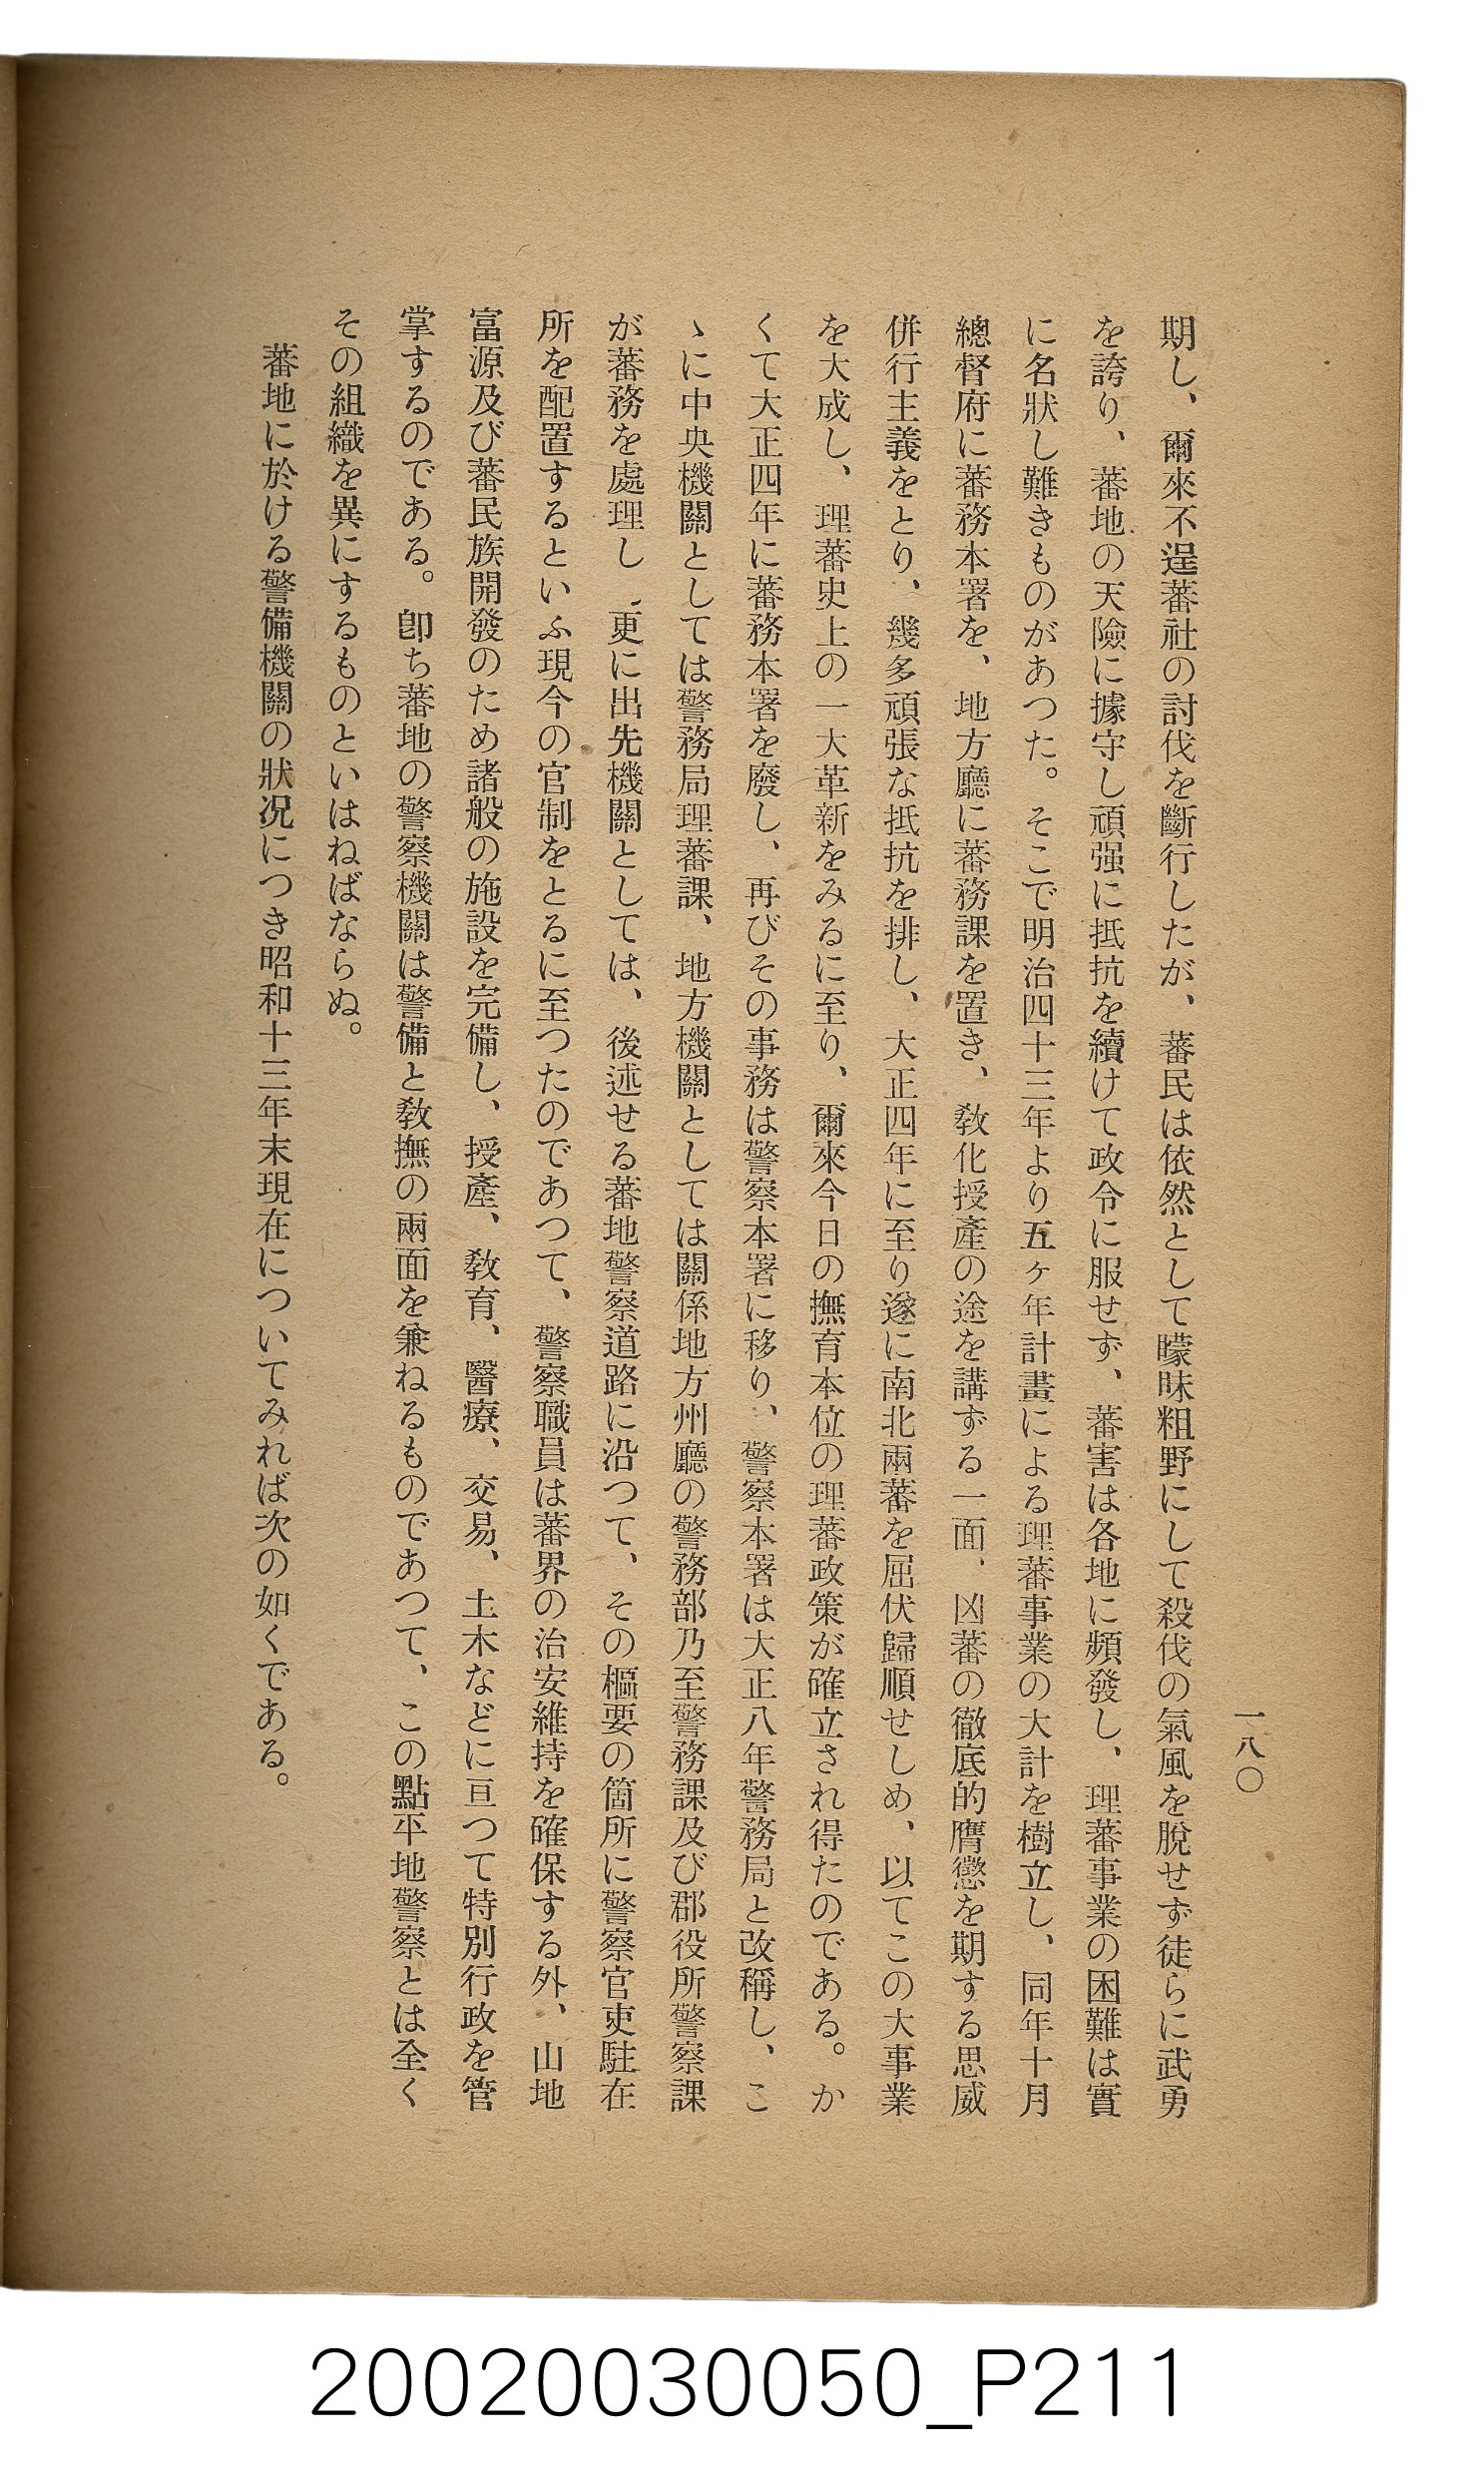 一八〇
期し、爾來不逞蕃社の討伐を斷行したが、蕃民は依然として曚昧粗野にして殺伐の氣風を脫せず徒らに武勇
を誇り、蕃地の天險に據守し頑强に抵抗を續けて政令に服せず、蕃害は各地に頻發し、理蕃事業の困難は實
に名狀し難きものがあつた。そこで明治四十三年より五ヶ年計畫による理蕃事業の大計を樹立し、同年十月
總督府に蕃務本署を、地方廳に蕃務課を置き、敎化授產の途を講ずる一面、凶蕃の徹底的膺懲を期する思威
併行主義をとり、幾多頑張な抵抗を排し、大正四年に至り遂に南北兩蕃を屈伏歸順せしめ、以てこの大事業
を大成し、理蕃史上の一大革新をみるに至り、爾來今日の撫育本位の理蕃政策が確立され得たのである。か
くて大正四年に蕃務本署を廢し、再びその事務は警察本署に移り、警察本署は大正八年警務局と改稱し、こ
ゝに中央機關としては警務局理蕃課、地方機關としては關係地方州廳の警務部乃至警務課及び郡役所警察課
が蕃務を處理し、更に出先機關としては、後述せる蕃地警察道路に沿つて、その樞要の箇所に警察官吏駐在
所を配置するといふ現今の官制をとるに至つたのであつて、警察職員は蕃界の治安維持を確保する外、山地
富源及び蕃民族開發のため諸般の施設を完備し、授產、敎育、醫療、交易、土木などに亘つて特別行政を管
掌するのである。卽ち蕃地の警察機關は警備と敎撫の兩面を兼ねるものであつて、この點平地警察とは全く
その組織を異にするものといはねばならぬ。
蕃地に於ける警備機關の狀況につき昭和十三年末現在についてみれば次の如くである。
20020030050_P211